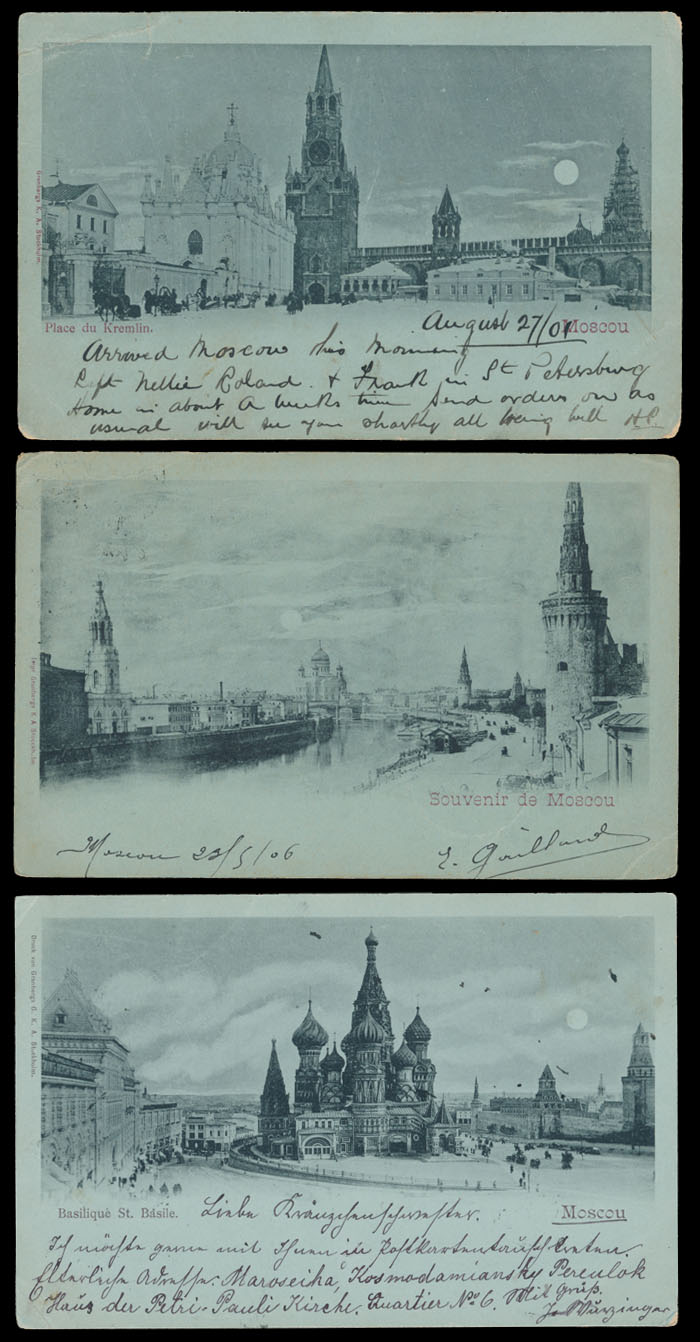 Granbergs K. A. Stockholm.
Place du Kremlin.
Moscou
August 27/01
Arrived Moscow this Morning
Left Nellie Roland. & Frank in St Petersburg
Home in about a weeks time send orders on as
usual will see you shortly all being well HP.
Impr. Granbergs K A Stockholm
Souvenir de Moscou
Moscou 23/5/06
E. Gaillard
Druck von Granbergs G. K. A. Stockholm.
Basilique St. Basile.
Moscou
Liebe Kränzchenschwester.
Ich möchte gerne mit Ihnen in Postkartentausch treten.
Elterliche Adresse: Maroseika, Kosmodamiansky Pereulok
Haus der Petri-Pauli Kirche. Quartier No 6. Mit Gruß.
J. Würzinger